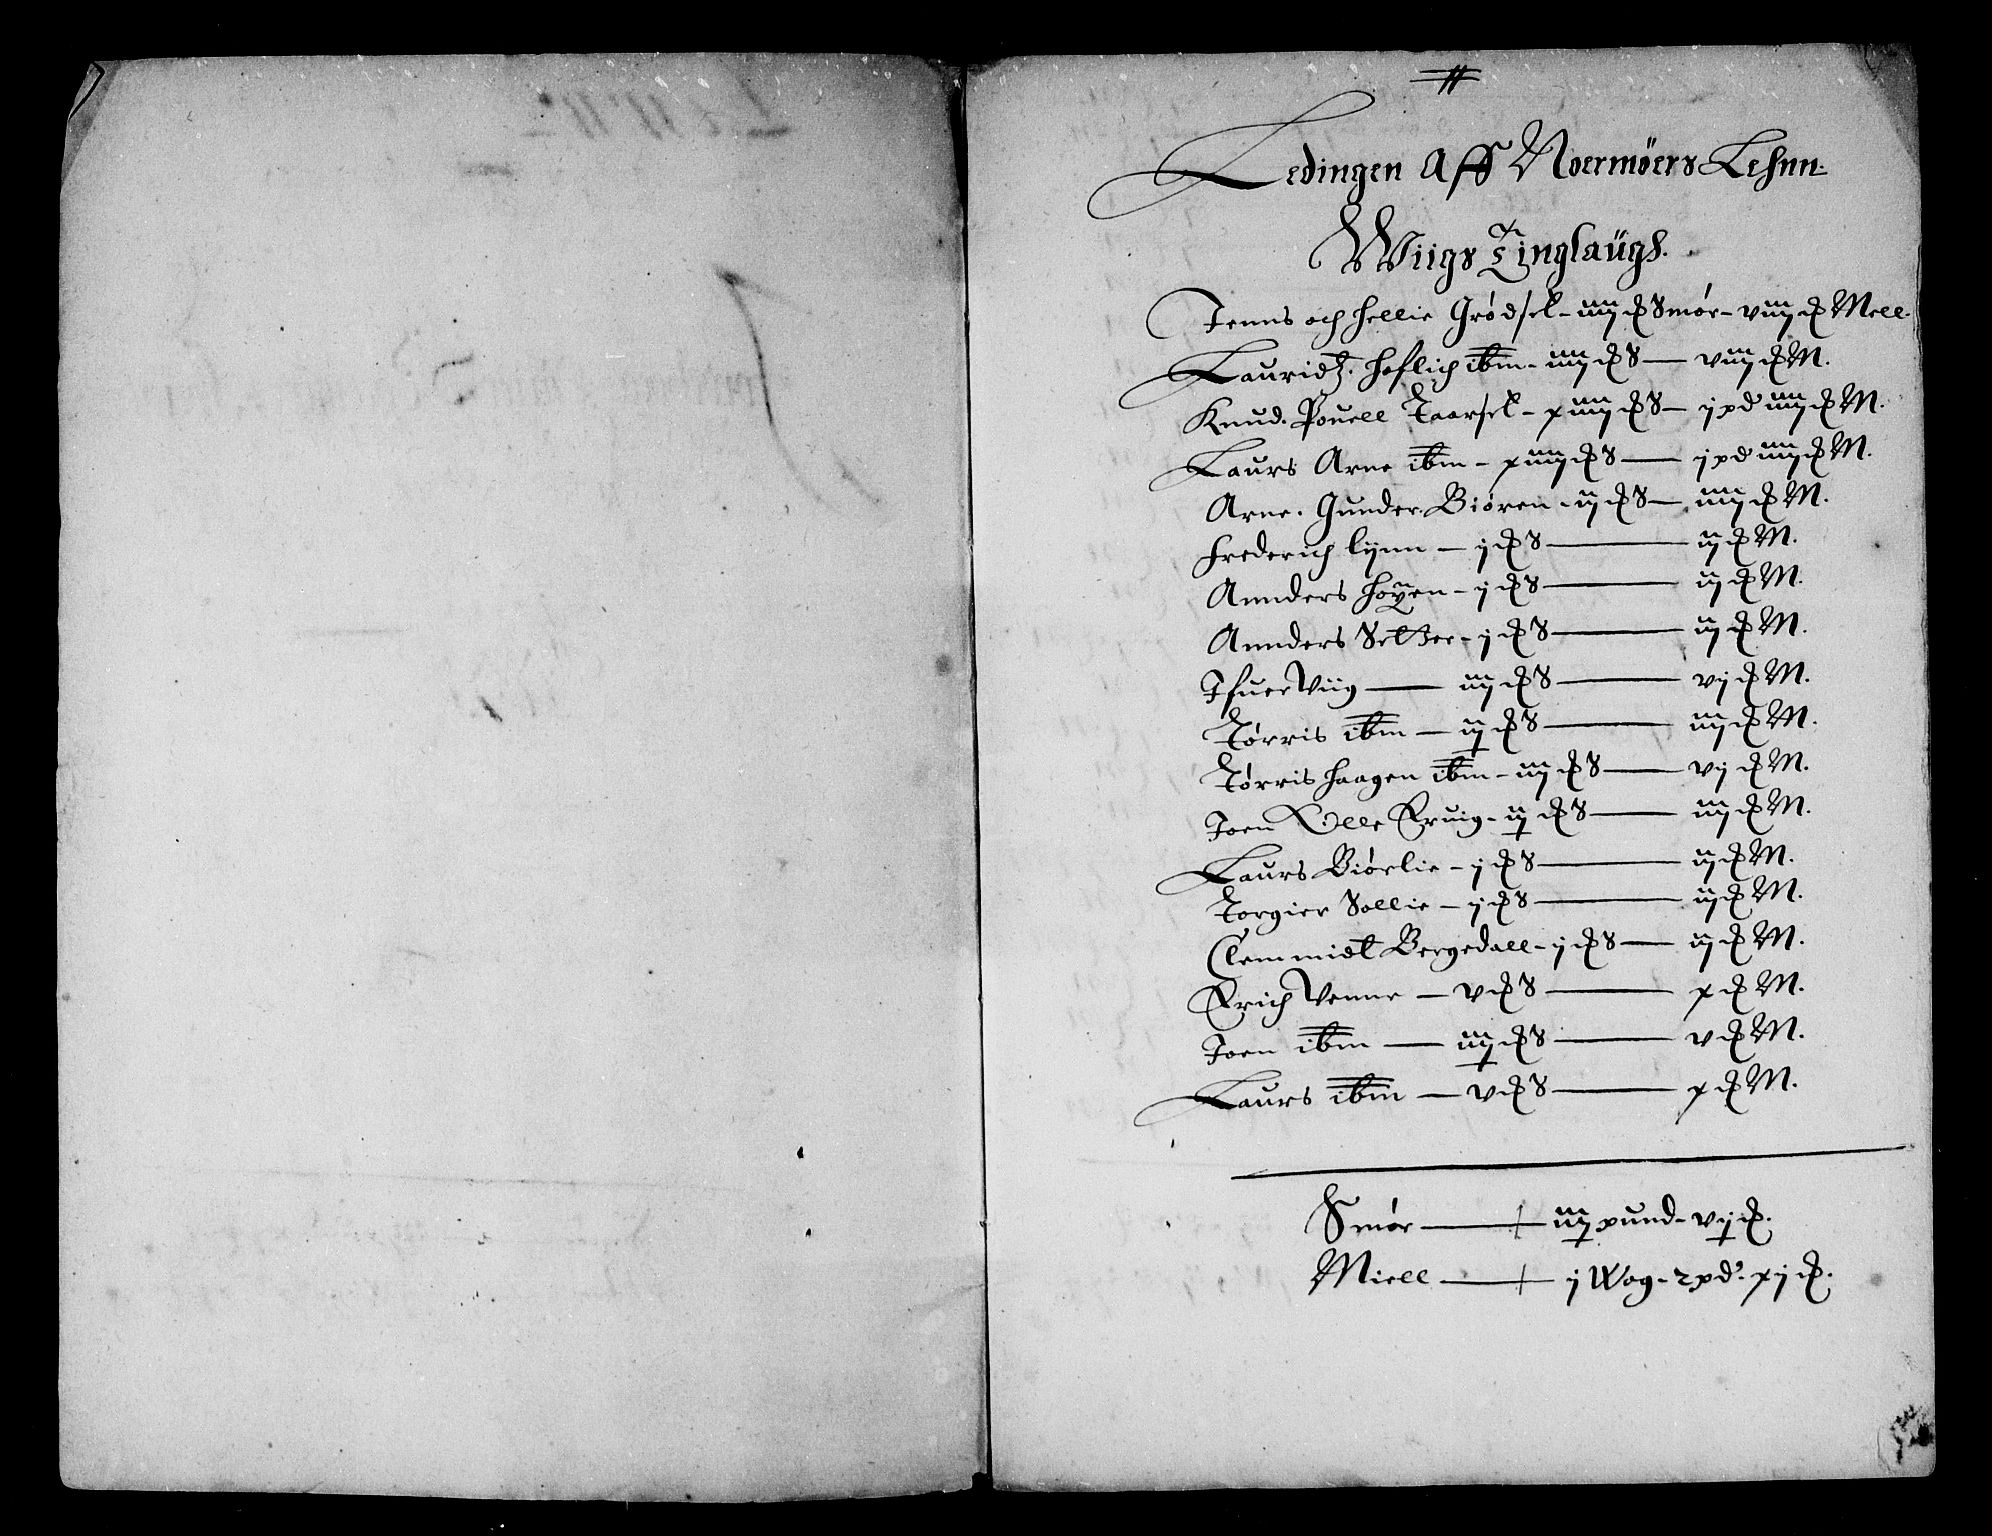 Ledingen Aff Noermöers Lehnn.
Wiigs Tinglaügh.
Jenns och Hellie Grødsel - iiij ₰ Smør - viij ₰ Mell.
Lauridz. Heflich ibm - iiij ₰ S — viij ₰ M.
Knud. Pouell Taarsel - xiiij ₰ S — j pd iiij ₰ M.
Laurs Arne ibm - xiiij ₰ S — j pd iiij ₰ M.
Arne. Gunder. Biøren - ij ₰ S — iiij ₰ M.
Frederich lijnn — j ₰ S — ij ₰ M.
Annders Høyen - j ₰ S — ij ₰ M.
Annders Setter - j ₰ S — ij ₰ M.
Ifuer Viig — iij ₰ S — vj ₰ M.
Tørris ibm — ij ₰ S — iij ₰ M.
Tørris Haagen ibm - iij ₰ S — vj ₰ M.
Joen Olle Kruig - ij ₰ S — iij ₰ M.
Laurs Biørlie - j ₰ S — ij ₰ M.
Torgier Sollie — j ₰ S — ij ₰ M.
Clemmidt Bergedall - j ₰ S — ij ₰ M.
Erich Venne — v ₰ S — x ₰ M.
Joen ibm — iij ₰ S — v ₰ M.
Laurs ibm — v ₰ S — x ₰ M.
Smør — iij pund - vij ₰.
Miell — j Wog - 2 pd. xj ₰.